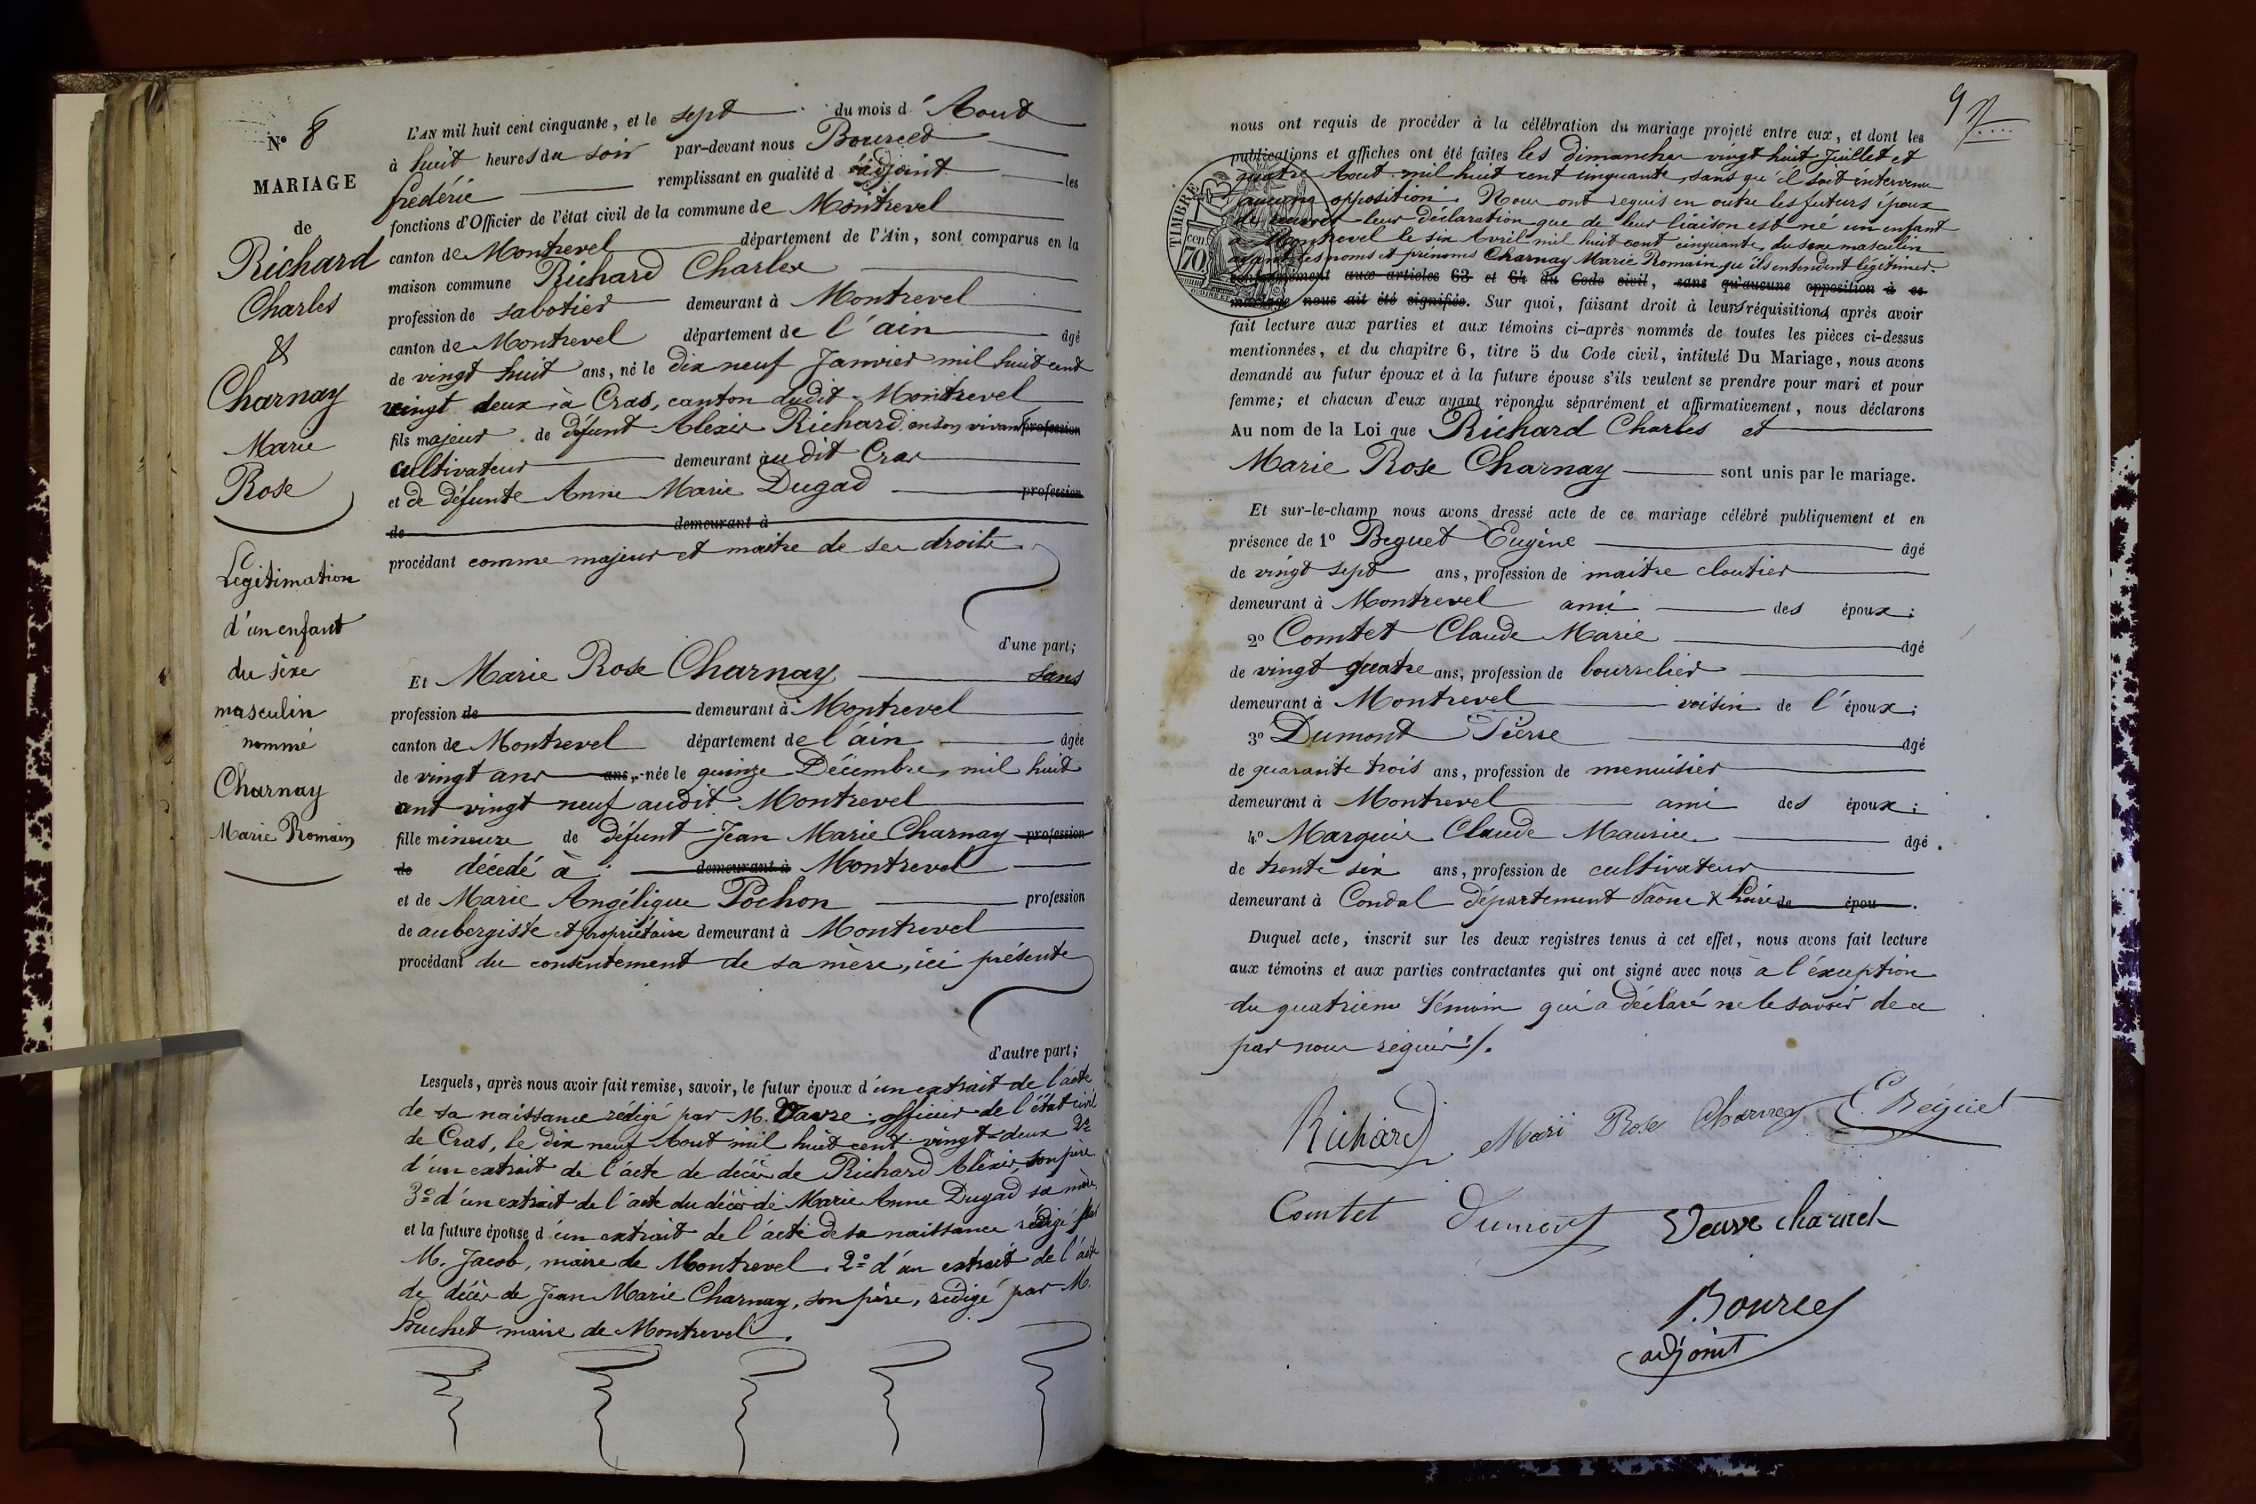 N° 8
MARIAGE
de
Richard
Charles
&
Charnay
Marie
Rose
Légitimation
d'un enfant
du sèxe
masculin
nommé
Charnay
Marie Romain
L'AN mil huit cent cinquante, et le sept du mois d'Aout
à huit heures du soir par-devant nous Bourced
frédéric remplissant en qualité d'adjoint les
fonctions d'Officier de l'état civil de la commune de Montrevel
canton de Montrevel département de l'Ain, sont comparus en la
maison commune Richard Charles
profession de sabotier demeurant à Montrevel
canton de Montrevel département de l'ain âgé
de vingt huit ans, né le dix neuf Janvier mil huit cent
vingt deux à Cras, canton dudit Montrevel
fils majeur de défunt Alexis Richard en son vivant profession
cultivateur demeurant audit Cras
et de défunte Anne Marie Dugad profession
de demeurant à
procédant comme majeur et maitre de ses droits
d'une part;
Et Marie Rose Charnay sans
profession de demeurant à Montrevel
canton de Montrevel département de l'ain âgée
de vingt ans ans, née le quinze Décembre mil huit
cent vingt neuf audit Montrevel
fille mineure de défunt Jean Marie Charnay profession
de décédé à demeurant à Montrevel
et de Marie Angélique Pochon profession
de aubergiste et propriétaire demeurant à Montrevel
procédant du consentement de sa mère, ici présente
d'autre part;
Lesquels, après nous avoir fait remise, savoir, le futur époux d'un extrait de l'acte
de sa naissance rédigé par M. Favre officier de l'état civil
de Cras, le dix neuf Aout mil huit cent vingt-deux 2°
d'un extrait de l'acte de décès de Richard Alexis, son père
3° d'un extrait de l'acte du décès de Marie Anne Dugad sa mère,
et la future épouse d'un extrait de l'acte de sa naissance rédigé par
M. Jacob, maire de Montrevel. 2° d'un extrait de l'acte
de décès de Jean Marie Charnay, son père, rédigé par M.
maire de Montrevel.
9
TIMBRE
70
nous ont requis de procéder à la célébration du mariage projeté entre eux, et dont les
publications et affiches ont été faites les dimanches vingt huit Juillet et
quatre Aout mil huit cent cinquante, sans qu'il soit intervenu
aucune opposition. Nous ont requis en outre les futurs époux
de recevoir leur déclaration que de leur liaison est né un enfant
à Montrevel le six Avril mil huit cent cinquante, du sexe masculin
ayant les noms et prénoms Charnay Marie Romain qu'ils entendent légitimer.
conformément aux articles 63 et 64 du Code civil, sans qu'aucune opposition à ce
mariage nous ait été signifiée. Sur quoi, faisant droit à leurs réquisitions, après avoir
fait lecture aux parties et aux témoins ci-après nommés de toutes les pièces ci-dessus
mentionnées, et du chapitre 6, titre 5 du Code civil, intitulé Du Mariage, nous avons
demandé au futur époux et à la future épouse s'ils veulent se prendre pour mari et pour
femme; et chacun d'eux ayant répondu séparément et affirmativement, nous déclarons
Au nom de la Loi que Richard Charles et
Marie Rose Charnay sont unis par le mariage.
Et sur-le-champ nous avons dressé acte de ce mariage célébré publiquement et en
présence de 1° Beguet Eugène âgé
de vingt sept ans, profession de maitre cloutier
demeurant à Montrevel ami des époux;
2° Comtet Claude Marie âgé
de vingt quatre ans, profession de bourrelier
demeurant à Montrevel voisin de l'époux;
3° Dumont Pierre âgé
de quarante trois ans, profession de menuisier
demeurant à Montrevel ami des époux;
4° Marguin Claude Maurice âgé
de trente six ans, profession de cultivateur
demeurant à Condal département Saône & Loire de épou.
Duquel acte, inscrit sur les deux registres tenus à cet effet, nous avons fait lecture
aux témoins et aux parties contractantes qui ont signé avec nous à l'éxception
du quatrieme témoin qui a déclaré ne le savoir de ce
par nous requis /.
Richard Mari Rose Charney E. Béguet
Comtet Dumont Veuve charnet
Bource
adjoint